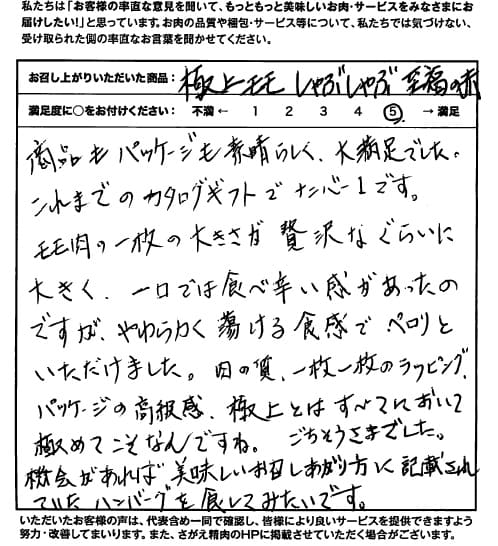 私たちは「お客様の率直な意見を聞いて、もっともっと美味しいお肉・サービスをみなさまにお
届けしたい！」と思っています。お肉の品質や梱包・サービス等について、私たちでは気づけない、
受け取られた側の率直なお言葉を聞かせてください。
お召し上がりいただいた商品： 極上モモ しゃぶしゃぶ 至福の赤
満足度に○をお付けください： 不満 ← 1 2 3 4 5 → 満足
商品もパッケージも素晴らしく、大満足でした。
これまでのカタログギフトでナンバー1です。
モモ肉の一枚の大きさが贅沢なぐらいに
大きく、一口では食べ辛い感があったの
ですが、やわらかく蕩ける食感でペロリと
いただけました。肉の質、一枚一枚のラッピング、
パッケージの高級感、極上とはすべてにおいて
極めてこそなんですね。ごちそうさまでした。
機会があれば美味しいお召しあがり方に記載され
ていたハンバーグを食してみたいです。
いただいたお客様の声は、代表含め一同で確認し、皆様により良いサービスを提供できますよう
努力・改善してまいります。また、さがえ精肉のHPに掲載させていただく場合がございます。